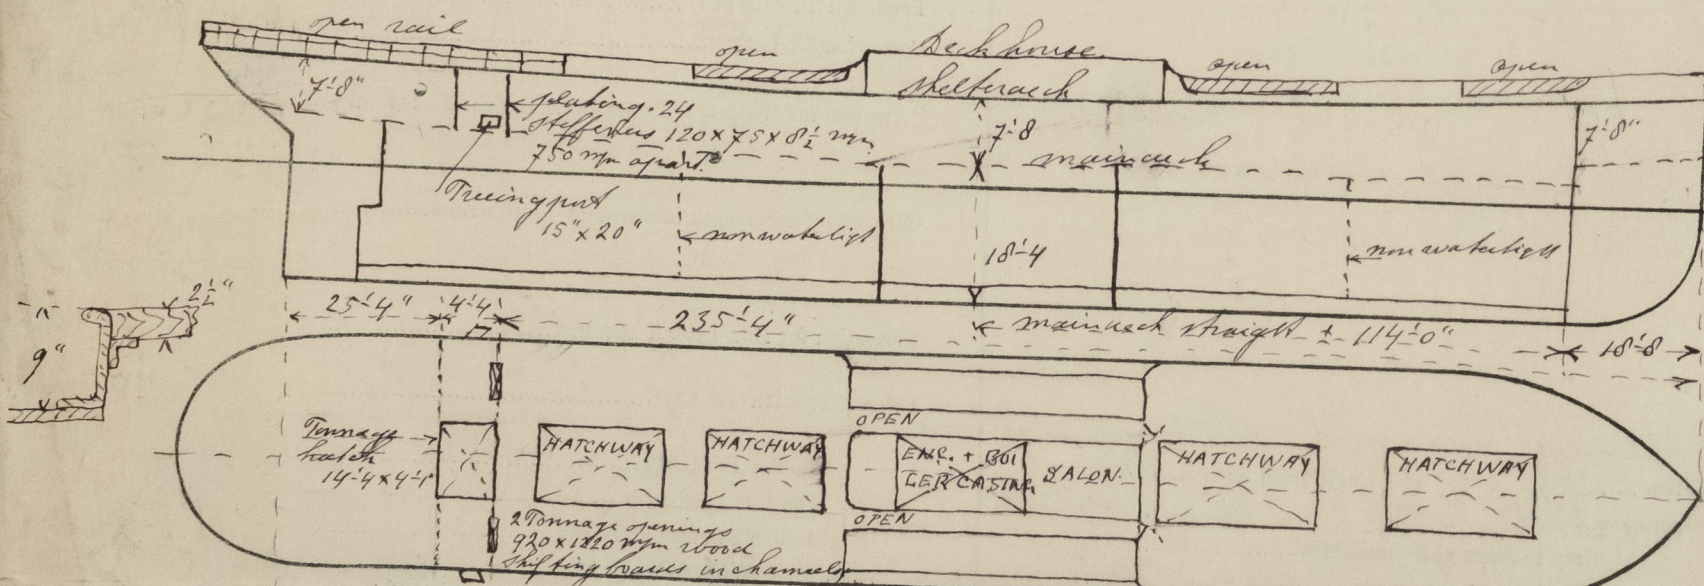 open rail
open
Deckhouse
open
open
shelterdeck
7'-8"
plating .24
stiffeners 120 x 75 x 8½ m/m
750 m/m apart
7'-8
maindeck
7'-8"
Freeingport
15" x 20"
nonwatertight
18'-4
nonwatertight
2½"
9"
25'-4"
4'-4"
235'-4"
maindeck straight ± 114'-0"
18'-8
Tonnage
hatch
14'-4 x 4'-1"
HATCHWAY
HATCHWAY
OPEN
ENG. + BOI
LER CASING
SALON.
OPEN
HATCHWAY
HATCHWAY
2 Tonnage openings
920 x 1220 m/m wood
shifting boards in channels